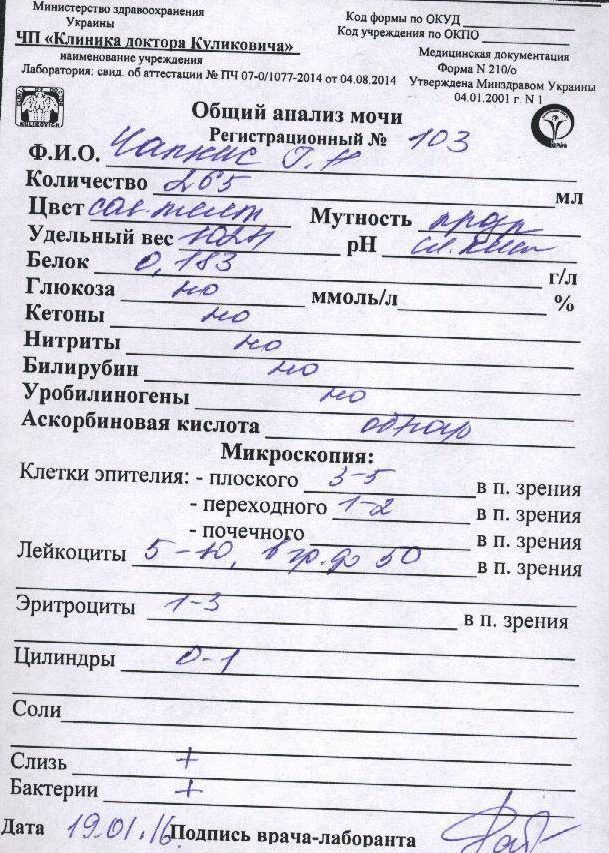 Министерство здравоохранения
Украины
ЧП «Клиника доктора Куликовича»
наименование учреждения
Лаборатория: свид. об аттестации № ПЧ 07-0/1077-2014 от 04.08.2014
Код формы по ОКУД
Код учреждения по ОКПО
Медицинская документация
Форма N 210/о
Утверждена Минздравом Украины
04.01.2001 г. N 1
Общий анализ мочи
Регистрационный № 103
Ф.И.О. Чапкис Г. Н
Количество 265 мл
Цвет сол-желт Мутность прозр
Удельный вес pH сл.кисл
Белок 0,183 г/л
Глюкоза но ммоль/л %
Кетоны но
Нитриты но
Билирубин но
Уробилиногены но
Аскорбиновая кислота обнар
Микроскопия:
Клетки эпителия: - плоского 3-5 в п. зрения
- переходного 1-2 в п. зрения
- почечного в п. зрения
Лейкоциты 5-10, в гр. до 50 в п. зрения
Эритроциты 1-3 в п. зрения
Цилиндры 0-1
Соли
Слизь +
Бактерии +
Дата 19.01.16 Подпись врача-лаборанта